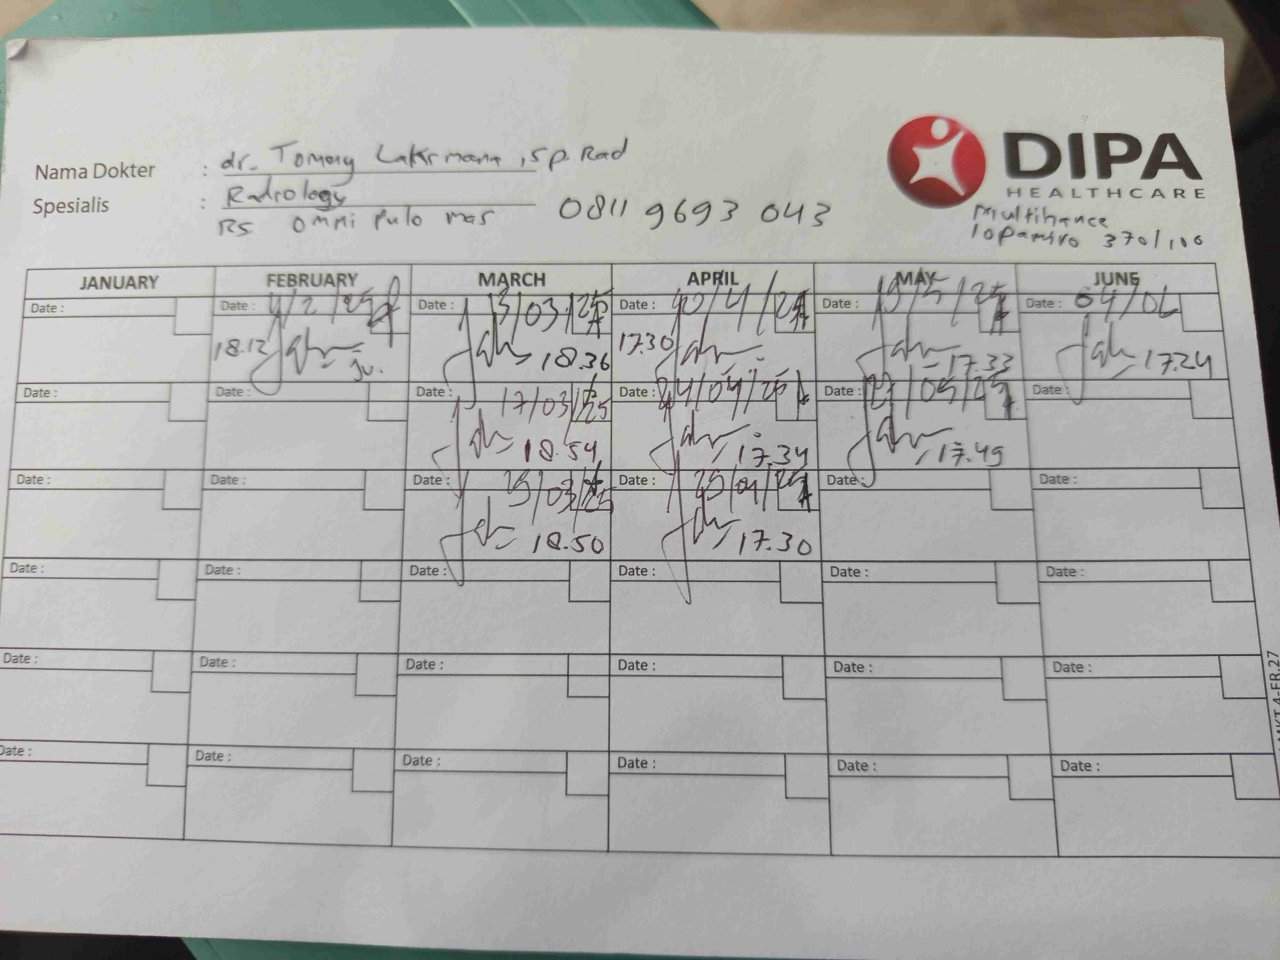 DIPA
HEALTHCARE
Nama Dokter : dr. Tommy Laksmana, Sp. Rad
Spesialis : Radiology
RS Omni Pulo mas 0811 9693 043
Multihance
Iopamiro 370/100
JANUARY FEBRUARY MARCH APRIL MAY JUNE
Date : Date : 4/2/25 Date : 13/03/25 Date : 10/4/25 Date : 19/5/25 Date : 04/06
18.12 18.36 17.30 17.33 17.24
Date : Date : Date : 17/03/25 Date : 24/04/25 Date : 27/05/25 Date :
18.54 17.34 17.49
Date : Date : Date : 25/03/25 Date : 25/04/25 Date : Date :
18.50 17.30
Date : Date : Date : Date : Date : Date :
Date : Date : Date : Date : Date : Date :
Date : Date : Date : Date : Date : Date :
MKT.4-FR.27